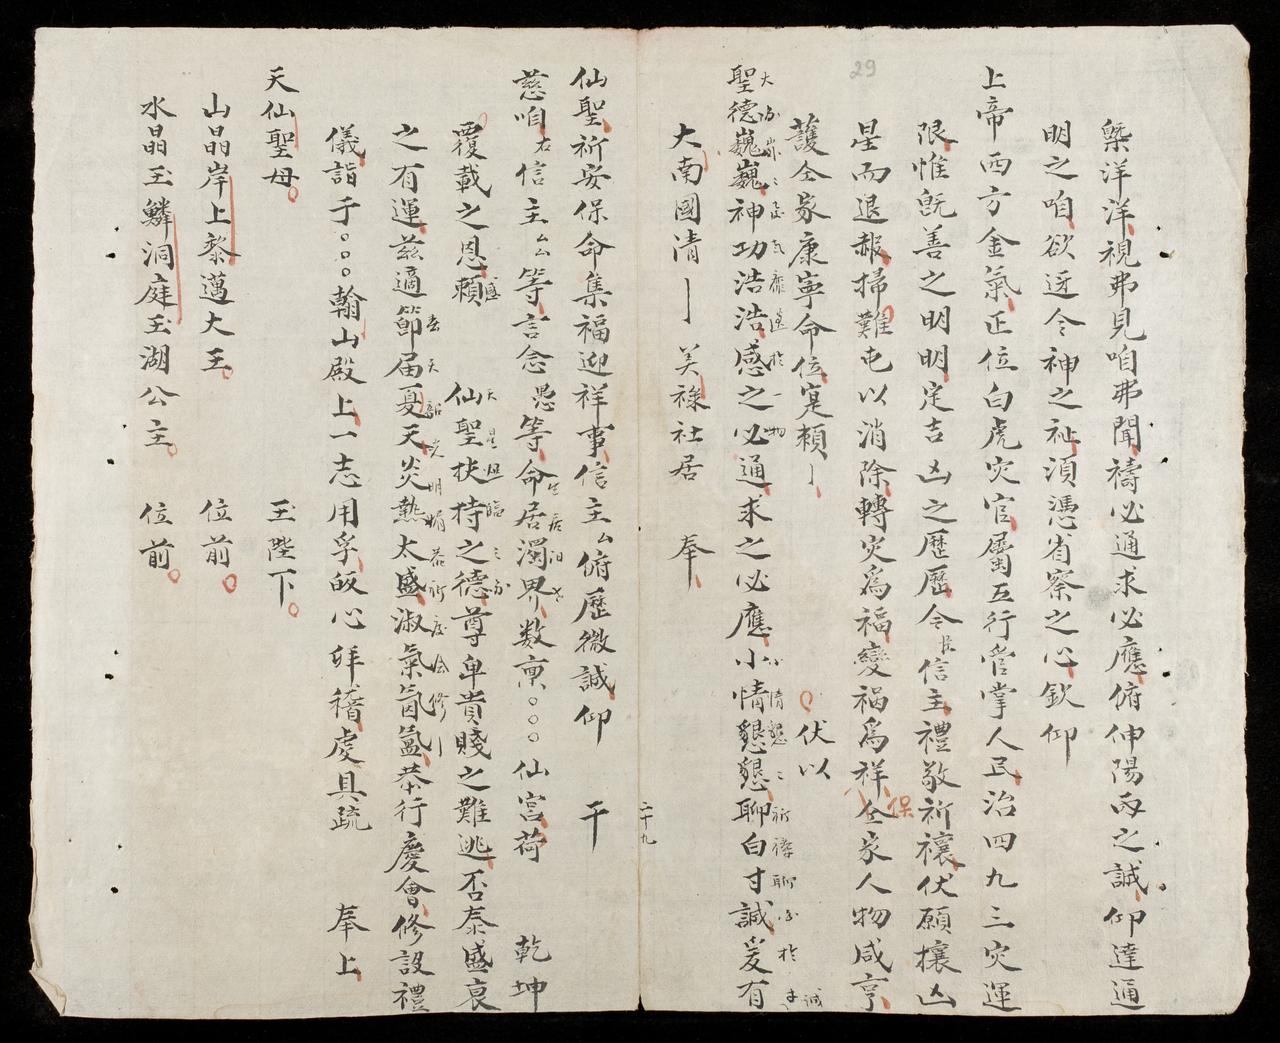 29
槩洋洋視弗見咱弗聞禱必通求必應俯伸陽雨之誠仰達通
明之咱欲迓令神之祉湏憑省察之心欽仰
上帝西方金氣正位白虎灾官屬五行管掌人民治四九三灾運
限惟旣善之明明定吉凶之歷歷令信主禮敬祈禳伏願攘凶
星而退赧掃難屯以消除轉灾爲福變禍爲祥仝家人物咸亨
保
護仝家康寧命位寔賴
伏以
聖德巍巍神功浩浩感之必通求之必應小情懇懇聊白寸誠爰有
小情懇〻祈禱聊
大南國清 美祿社居 奉
二十九
仙聖祈安保命集福迎祥事信主厶俯歷微誠仰 干
慈咱右信主厶厶等言念愚等命居濁界数禀〇〇〇仙宫荷 乾坤
覆載之恩賴盛 仙聖扶持之德尊卑貴賤之難逃否泰盛衰
之有運茲適節届夏天炎熱太盛淑氣氤氳恭行慶會修設禮
儀詣于〇〇〇翰山殿上一志用孚皈心拜稽虔具疏 奉上
天仙聖母 玉陛下
山晶岸上黎邁大王 位前
水晶玉鱗洞庭玉湖公主 位前